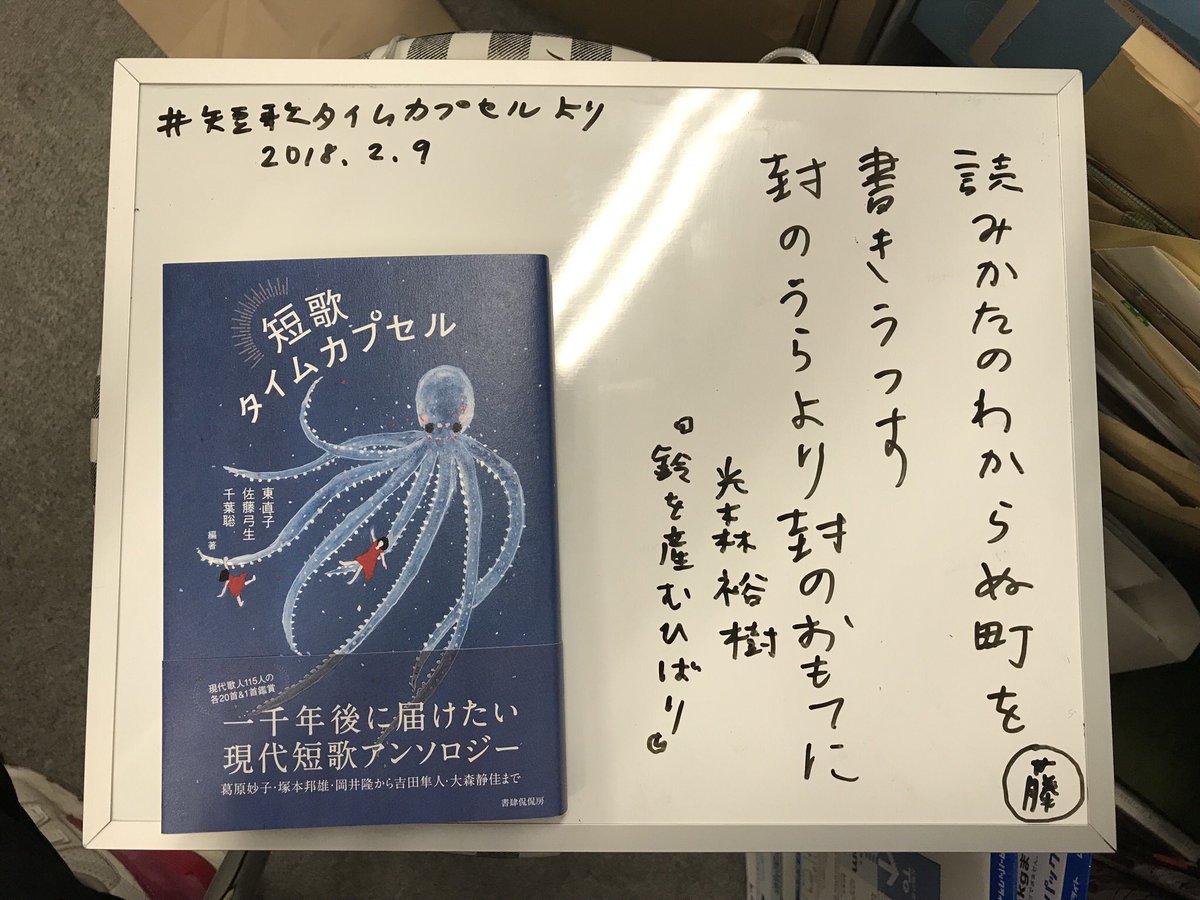 #短歌タイムカプセルより
2018.2.9
読みかたのわからぬ町を
書きうつす
封のうらより封のおもてに
光森裕樹
『鈴を産むひばり』
藤
短歌
タイムカプセル
東直子
佐藤弓生
千葉聡
編著
現代歌人115人の
各20首&1首鑑賞
一千年後に届けたい
現代短歌アンソロジー
葛原妙子・塚本邦雄・岡井隆から吉田隼人・大森静佳まで
書肆侃侃房